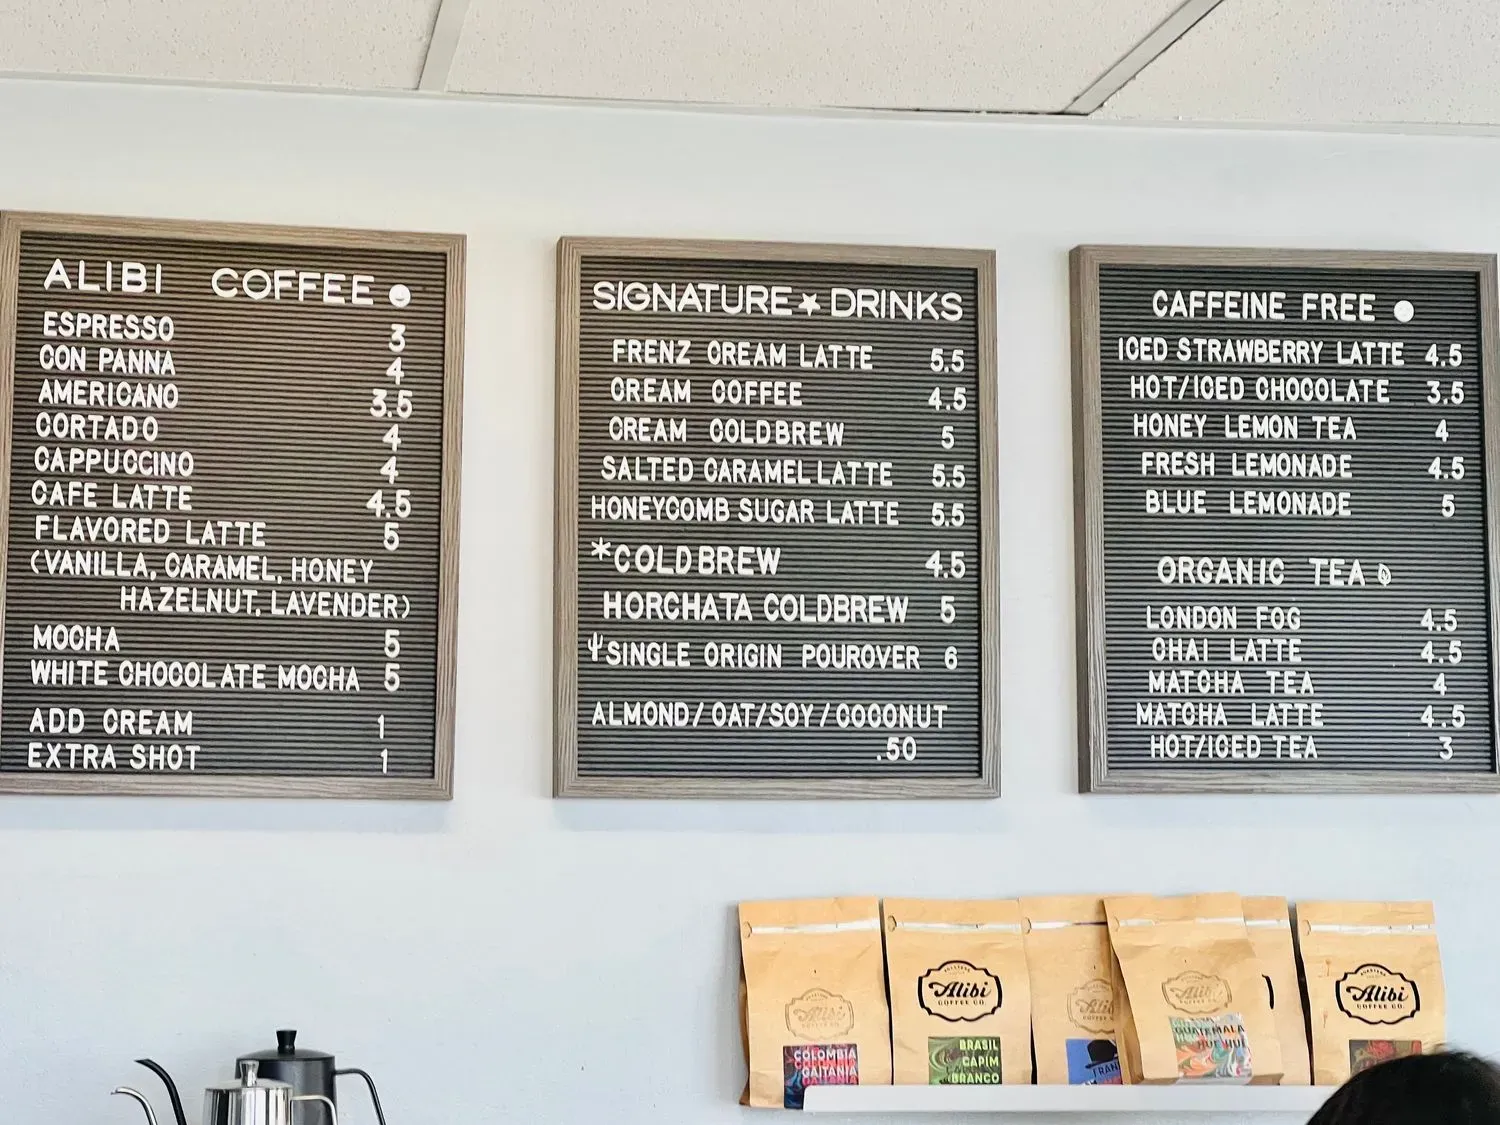 ALIBI COFFEE
ESPRESSO 3
CON PANNA 4
AMERICANO 3.5
CORTADO 4
CAPPUCCINO 4
CAFE LATTE 4.5
FLAVORED LATTE 5
(VANILLA, CARAMEL, HONEY
HAZELNUT, LAVENDER)
MOCHA 5
WHITE CHOCOLATE MOCHA 5
ADD CREAM 1
EXTRA SHOT 1
SIGNATURE DRINKS
FRENZ CREAM LATTE 5.5
CREAM COFFEE 4.5
CREAM COLDBREW 5
SALTED CARAMEL LATTE 5.5
HONEYCOMB SUGAR LATTE 5.5
*COLDBREW 4.5
HORCHATA COLDBREW 5
SINGLE ORIGIN POUROVER 6
ALMOND/OAT/SOY/COCONUT
.50
CAFFEINE FREE
ICED STRAWBERRY LATTE 4.5
HOT/ICED CHOCOLATE 3.5
HONEY LEMON TEA 4
FRESH LEMONADE 4.5
BLUE LEMONADE 5
ORGANIC TEA
LONDON FOG 4.5
CHAI LATTE 4.5
MATCHA TEA 4
MATCHA LATTE 4.5
HOT/ICED TEA 3
Alibi
COFFEE CO.
COLOMBIA
GAITANIA
Alibi
COFFEE CO.
BRASIL
CAPIM
BRANCO
Alibi
COFFEE CO.
GUATEMALA
Alibi
COFFEE CO.